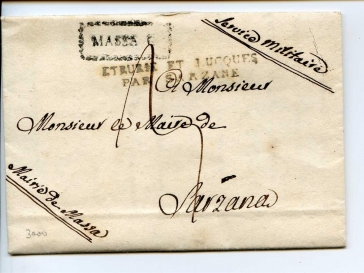 MASSA
Service Militaire
ETRURIE ET LUCQUES
PAR SARZANE
A Monsieur
Monsieur le Maire de
Sarzana
Mairie de Massa
3000